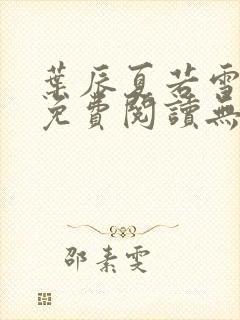 葉辰夏若雪
免費閱讀無
邵素雯